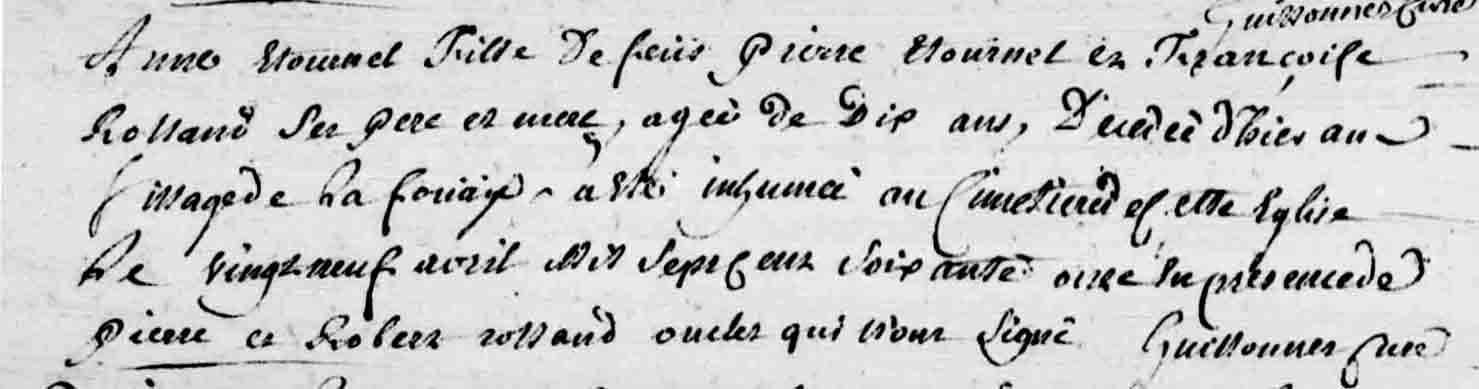 Guillonnet curé
Anne Etournel fille de feus Pierre Etournel et Françoise
Rolland ses pere et mere, agée de dix ans, décédée d'hier au
village de la a été inhumée au cimetiere de cette Eglise
Le vingt neuf avril mil sept cent soixante onze en presence de
Pierre et Robert rolland oncles qui n'ont signé Guillonnet curé